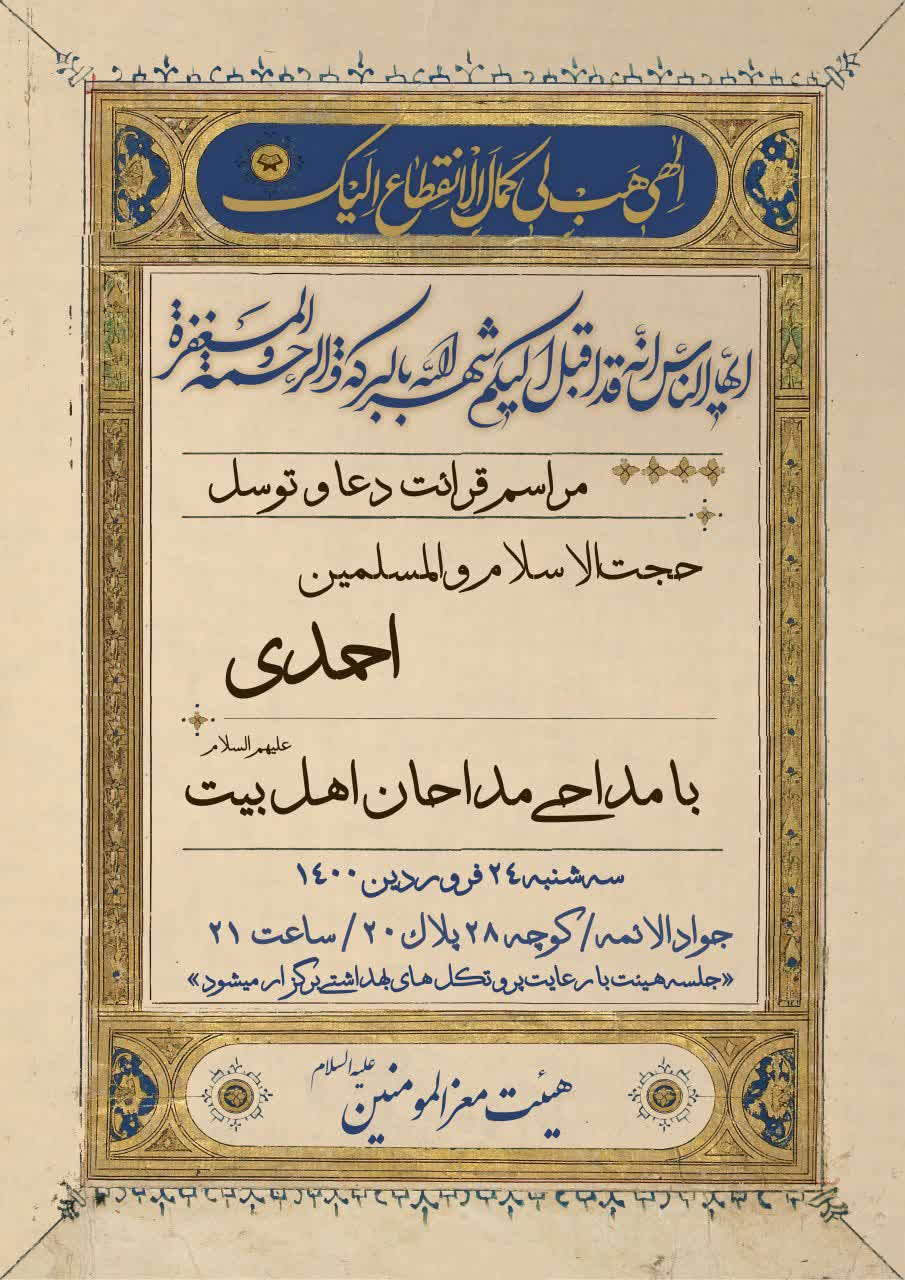 إلٰهی هَب لی کَمالَ الِانقِطاعِ اِلَیک
ایها الناس انه قد اقبل الیکم شهر الله بالبرکة و الرحمة و المغفرة
مراسم قرائت دعا و توسل
حجت‌الاسلام والمسلمین
احمدی
با مداحی مداحان اهل بیت علیهم السلام
سه شنبه ۲۴ فروردین ۱۴۰۰
جوادالائمه / کوچه ۲۸ پلاک ۲۰ / ساعت ۲۱
«جلسه هیئت با رعایت پروتکل های بهداشتی برگزار میشود»
هیئت معزالمومنین علیه السلام